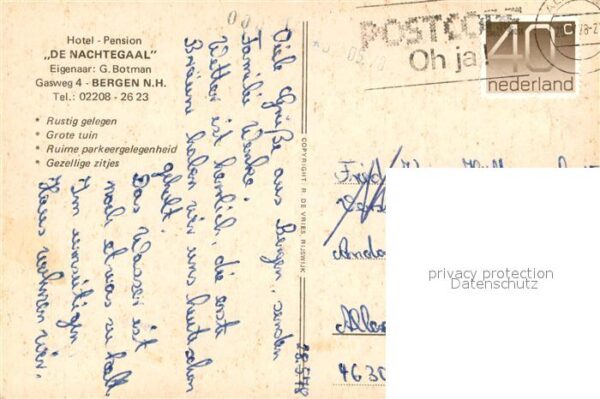 Hotel - Pension
„DE NACHTEGAAL”
Eigenaar: G. Botman
Gasweg 4 - BERGEN N.H.
Tel.: 02208 - 26 23
* Rustig gelegen
* Grote tuin
* Ruime parkeergelegenheid
* Gezellige zitjes
POSTCODE
Oh ja!
40 c
nederland
Viele Grüße aus Bergen, senden
Familie
Wetter ist herrlich, die erste
Bräune haben wir uns heute schon
geholt.
Das Wasser ist
noch etwas zu kalt.
Im umseitigen
Haus wohnen wir.
28.5.78
COPYRIGHT: R. DE VRIES, RIJSWIJK
4630
privacy protection
Datenschutz